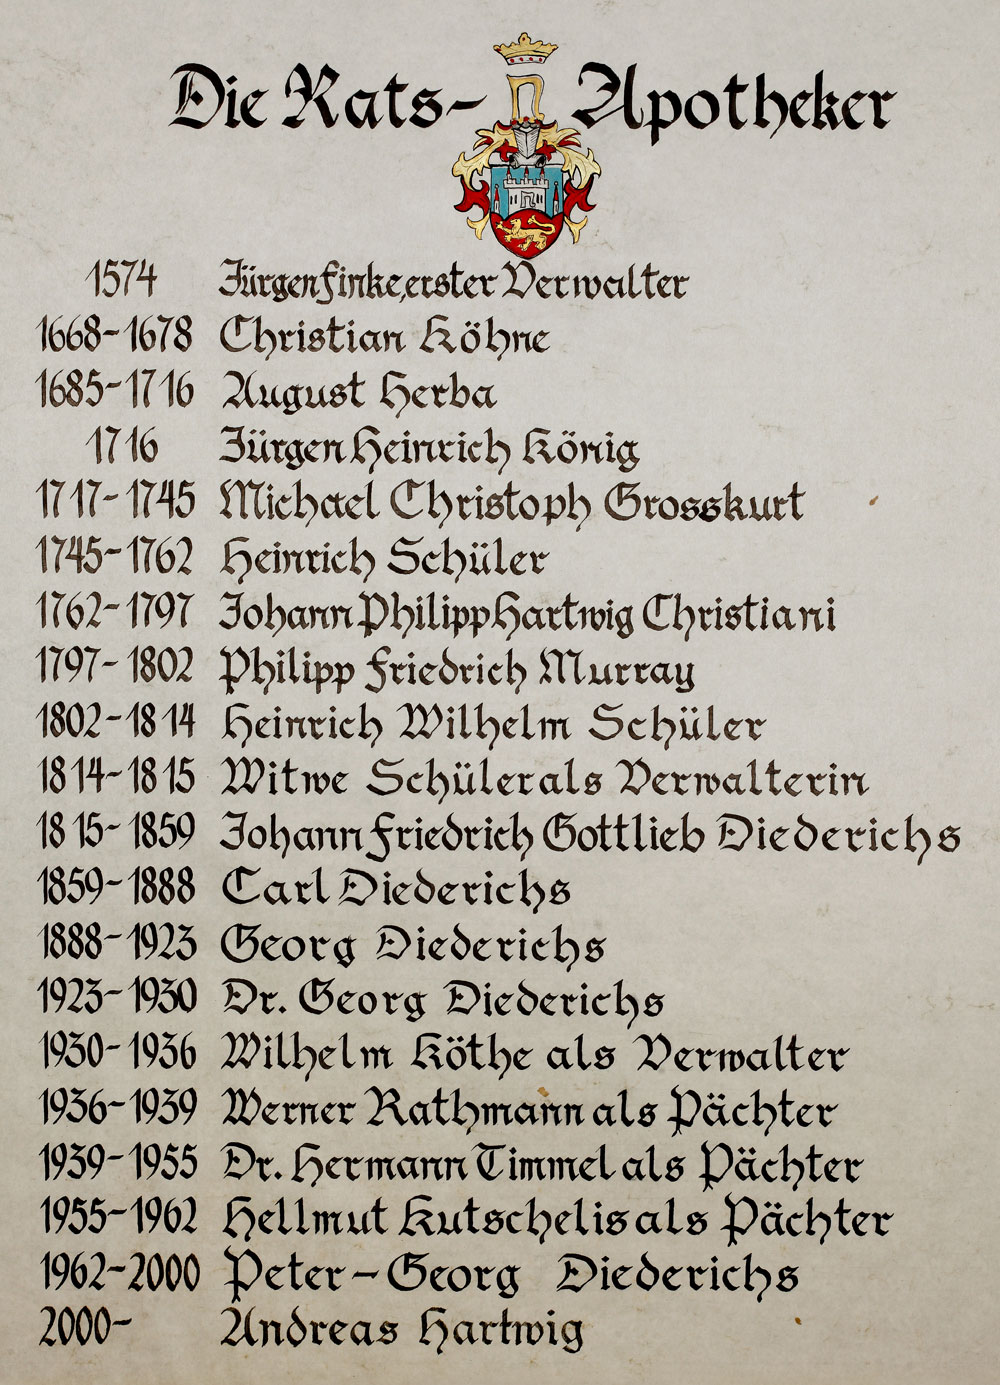 Die Rats-Apotheker
1574 Jürgen Finke, erster Verwalter
1668-1678 Christian Köhne
1685-1716 August Herba
1716 Jürgen Heinrich König
1717-1745 Michael Christoph Grosskurt
1745-1762 Heinrich Schüler
1762-1797 Johann Philipp Hartwig Christiani
1797-1802 Philipp Friedrich Murray
1802-1814 Heinrich Wilhelm Schüler
1814-1815 Witwe Schüler als Verwalterin
1815-1859 Johann Friedrich Gottlieb Diederichs
1859-1888 Carl Diederichs
1888-1923 Georg Diederichs
1923-1930 Dr. Georg Diederichs
1930-1936 Wilhelm Köthe als Verwalter
1936-1939 Werner Rathmann als Pächter
1939-1955 Dr. Hermann Timmel als Pächter
1955-1962 Hellmut Kutschelis als Pächter
1962-2000 Peter-Georg Diederichs
2000- Andreas Hartwig